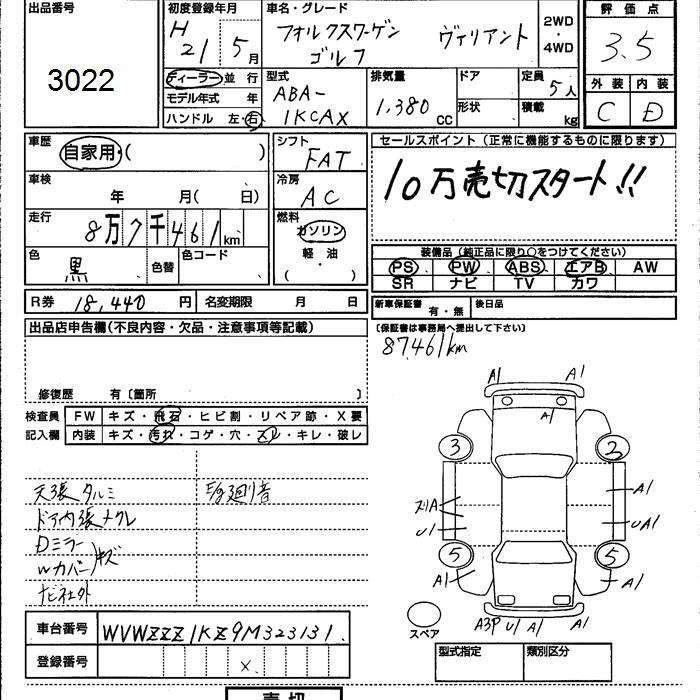 出品番号
3022
初度登録年月
H 21 5月
車名・グレード
フォルクスワーゲン ヴァリアント
ゴルフ
2WD
・4WD
評価点
3.5
外装 内装
C D
ディーラー 並行
モデル年式 年
ハンドル 左・右
型式
ABA-
1KCAX
排気量
1,380cc
ドア
形状
定員
5人
積載
kg
車歴
自家用・( )
車検
年 月( 日)
走行
8万7千461km
色
黒
色替
色コード
R券 18,440円 名変期限 月 日
シフト
FAT
冷房
AC
燃料
ガソリン
軽・油
( )
セールスポイント(正常に機能するものに限ります)
10万売切スタート!!
装備品(純正品に限り○をつけてください)
PS PW ABS エアB AW
SR ナビ TV カワ
新車保証書 有・無 後日品
(保証書は事務局へ提出して下さい)
87,461km
出品店申告欄(不良内容・欠品・注意事項等記載)
修復歴 有〔箇所 〕
検査員 FW キズ・飛石・ヒビ割・リペア跡・X要
記入欄 内装 キズ・汚れ・コゲ・穴・スレ・キレ・破レ
天張タルミ
E/g廻り音
ドア内張メクレ
Dミラー
Wカバー キズ
ナビ社外
A1 A1
A1
3 2
A1
ズリA
U1 UA1
5 5
A1 A1
A3P U1 A1 A1
スペア
車台番号 WVWZZZ1KZ9M323131
登録番号 X
型式指定 類別区分
売切